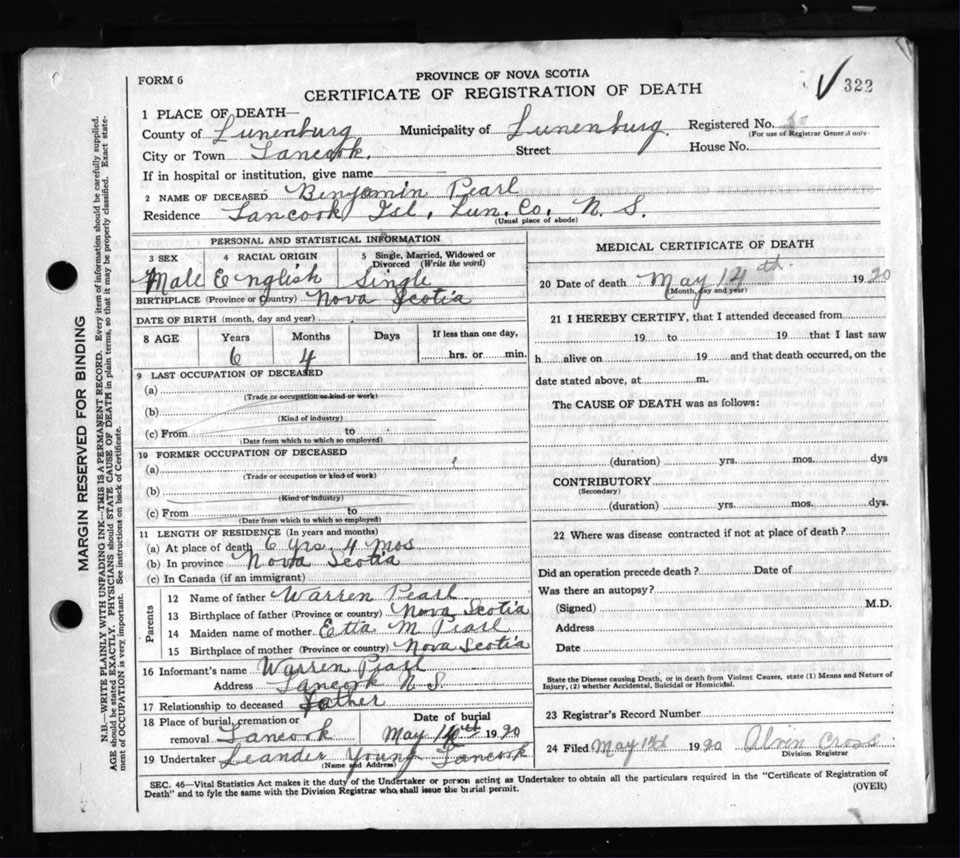 FORM 6
PROVINCE OF NOVA SCOTIA
CERTIFICATE OF REGISTRATION OF DEATH
322
1 PLACE OF DEATH—
County of Lunenburg Municipality of Lunenburg Registered No.
(For use of Registrar General only)
City or Town Tancook. Street House No.
If in hospital or institution, give name
2 NAME OF DECEASED Benjamin Pearl
Residence Tancook Isl, Lun. Co, N. S.
(Usual place of abode)
PERSONAL AND STATISTICAL INFORMATION
3 SEX 4 RACIAL ORIGIN 5 Single, Married, Widowed or Divorced (Write the word)
Male English Single
BIRTHPLACE (Province or country) Nova Scotia
DATE OF BIRTH (month, day and year)
8 AGE Years Months Days If less than one day,
6 4 hrs. or min.
9 LAST OCCUPATION OF DECEASED
(a)
(Trade or occupation or kind or work)
(b)
(Kind of industry)
(c) From to
(Date from which to which so employed)
10 FORMER OCCUPATION OF DECEASED
(a)
(Trade or occupation or kind of work)
(b)
(Kind of industry)
(c) From to
(Date from which to which so employed)
11 LENGTH OF RESIDENCE (In years and months)
(a) At place of death 6 yrs. 4 mos
(b) In province Nova Scotia
(c) In Canada (if an immigrant)
Parents
12 Name of father Warren Pearl
13 Birthplace of father (Province or country) Nova Scotia
14 Maiden name of mother Etta M Pearl
15 Birthplace of mother (Province or country) Nova Scotia
16 Informant's name Warren Pearl
Address Tancook N S.
17 Relationship to deceased Father
18 Place of burial, cremation or removal Tancook
Date of burial
May 1920
19 Undertaker Leander Young Tancook
(Name and Address)
MEDICAL CERTIFICATE OF DEATH
20 Date of death May 14th 1920
(Month, day and year)
21 I HEREBY CERTIFY, that I attended deceased from
19 to 19 that I last saw
h alive on 19 and that death occurred, on the
date stated above, at m.
The CAUSE OF DEATH was as follows:
(duration) yrs. mos. dys
CONTRIBUTORY
(Secondary)
(duration) yrs. mos. dys.
22 Where was disease contracted if not at place of death?
Did an operation precede death? Date of
Was there an autopsy?
(Signed) M.D.
Address
Date
State the Disease causing Death, or in death from Violent Causes, state (1) Means and Nature of
Injury, (2) whether Accidental, Suicidal or Homicidal.
23 Registrar's Record Number
24 Filed May 1920 Alvin Cross
Division Registrar
SEC. 46—Vital Statistics Act makes it the duty of the Undertaker or person acting as Undertaker to obtain all the particulars required in the "Certificate of Registration of
Death" and to fyle the same with the Division Registrar who shall issue the burial permit.
(OVER)
MARGIN RESERVED FOR BINDING
N.B.—WRITE PLAINLY WITH UNFADING INK—THIS IS A PERMANENT RECORD. Every item of information should be carefully supplied.
AGE should be stated EXACTLY. PHYSICIANS should STATE CAUSE OF DEATH in plain terms, so that it may be properly classified. Exact statement
of OCCUPATION is very important. See instructions on back of Certificate.